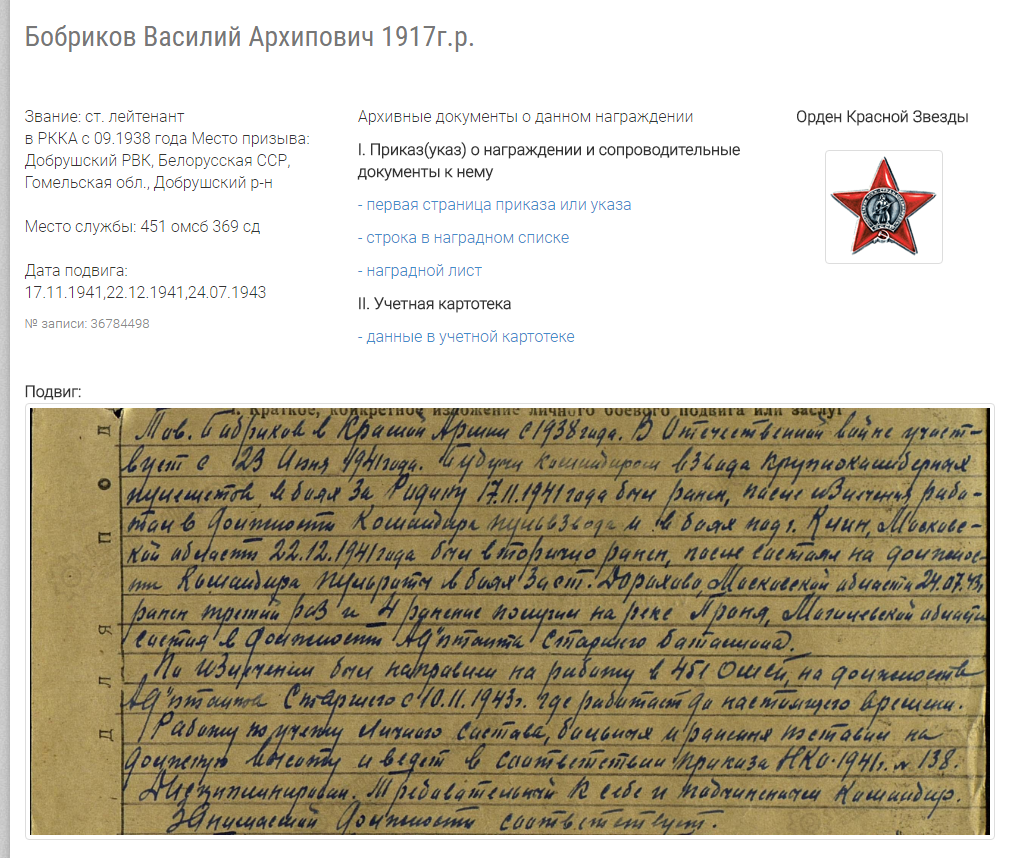 Бобриков Василий Архипович 1917г.р.
Звание: ст. лейтенант
в РККА с 09.1938 года Место призыва:
Добрушский РВК, Белорусская ССР,
Гомельская обл., Добрушский р-н
Место службы: 451 омсб 369 сд
Дата подвига:
17.11.1941,22.12.1941,24.07.1943
№ записи: 36784498
Архивные документы о данном награждении
I. Приказ(указ) о награждении и сопроводительные
документы к нему
- первая страница приказа или указа
- строка в наградном списке
- наградной лист
II. Учетная картотека
- данные в учетной картотеке
Орден Красной Звезды
Подвиг:
I. Краткое, конкретное изложение личного боевого подвига или заслуг
Тов. Бобриков в Красной Армии с 1938 года. В Отечественной войне участ-
вует с 23 Июня 1941 года. Будучи командиром взвода крупнокалиберных
пулеметов в боях за Родину 17.11.1941 года был ранен, после излечения рабо-
тал в должности Командира пульвзвода и в боях под г. Клин, Московс-
кой области 22.12.1941 года был вторично ранен, после состоял на должнос-
ти Командира пульроты в боях за ст. Дорохово, Московской области 24.07.43г.
ранен третий раз и 4 ранение получил на реке Проня, Могилевской области
состоя в должности Ад"ютанта Старшего батальона.
По излечении был направлен на работу в 451 ОМСБ, на должность
Ад"ютанта Старшего с 10.11.1943г. где работает до настоящего времени.
Работу по учету личного состава, больных и раненых поставил на
должную высоту и ведет в соответствии приказа НКО-1941г. № 138.
Дисциплинирован. Требовательный к себе и подчиненным Командир.
Занимаемой должности соответствует.
Д Л Я П О Д